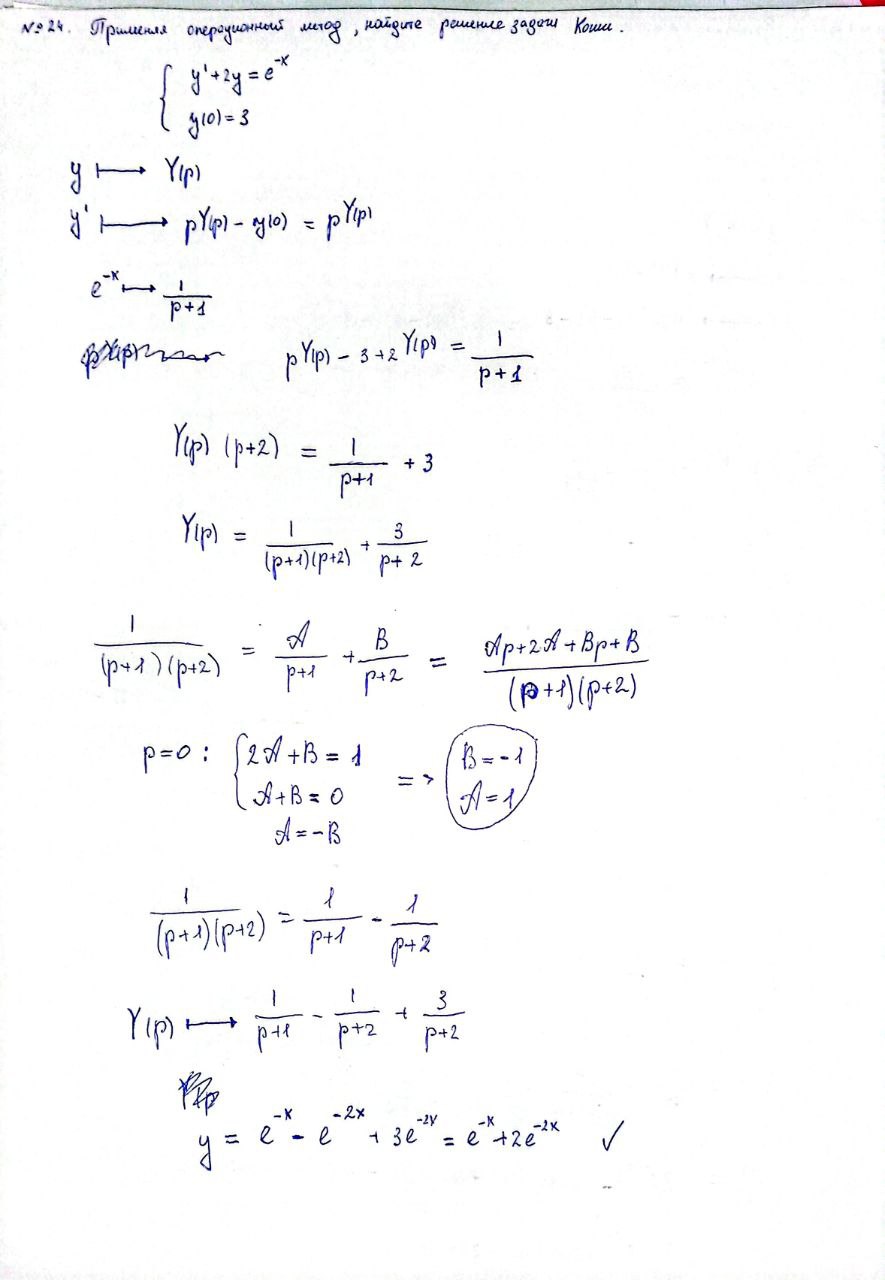 №24. Применяя операционный метод, найдите решение задачи Коши.
{ y' + 2y = e^{-x}
y(0) = 3
y ⟼ Y(p)
y' ⟼ pY(p) - y(0) = pY(p)
e^{-x} ⟼ 1/(p+1)
pY(p) - 3 + 2Y(p) = 1/(p+1)
Y(p) (p+2) = 1/(p+1) + 3
Y(p) = 1/((p+1)(p+2)) + 3/(p+2)
1/((p+1)(p+2)) = A/(p+1) + B/(p+2) = (Ap+2A+Bp+B)/((p+1)(p+2))
p=0: { 2A+B = 1 => B = -1
A+B = 0 A = 1
A = -B
1/((p+1)(p+2)) = 1/(p+1) - 1/(p+2)
Y(p) ⟼ 1/(p+1) - 1/(p+2) + 3/(p+2)
y = e^{-x} - e^{-2x} + 3e^{-2x} = e^{-x} + 2e^{-2x} ✓